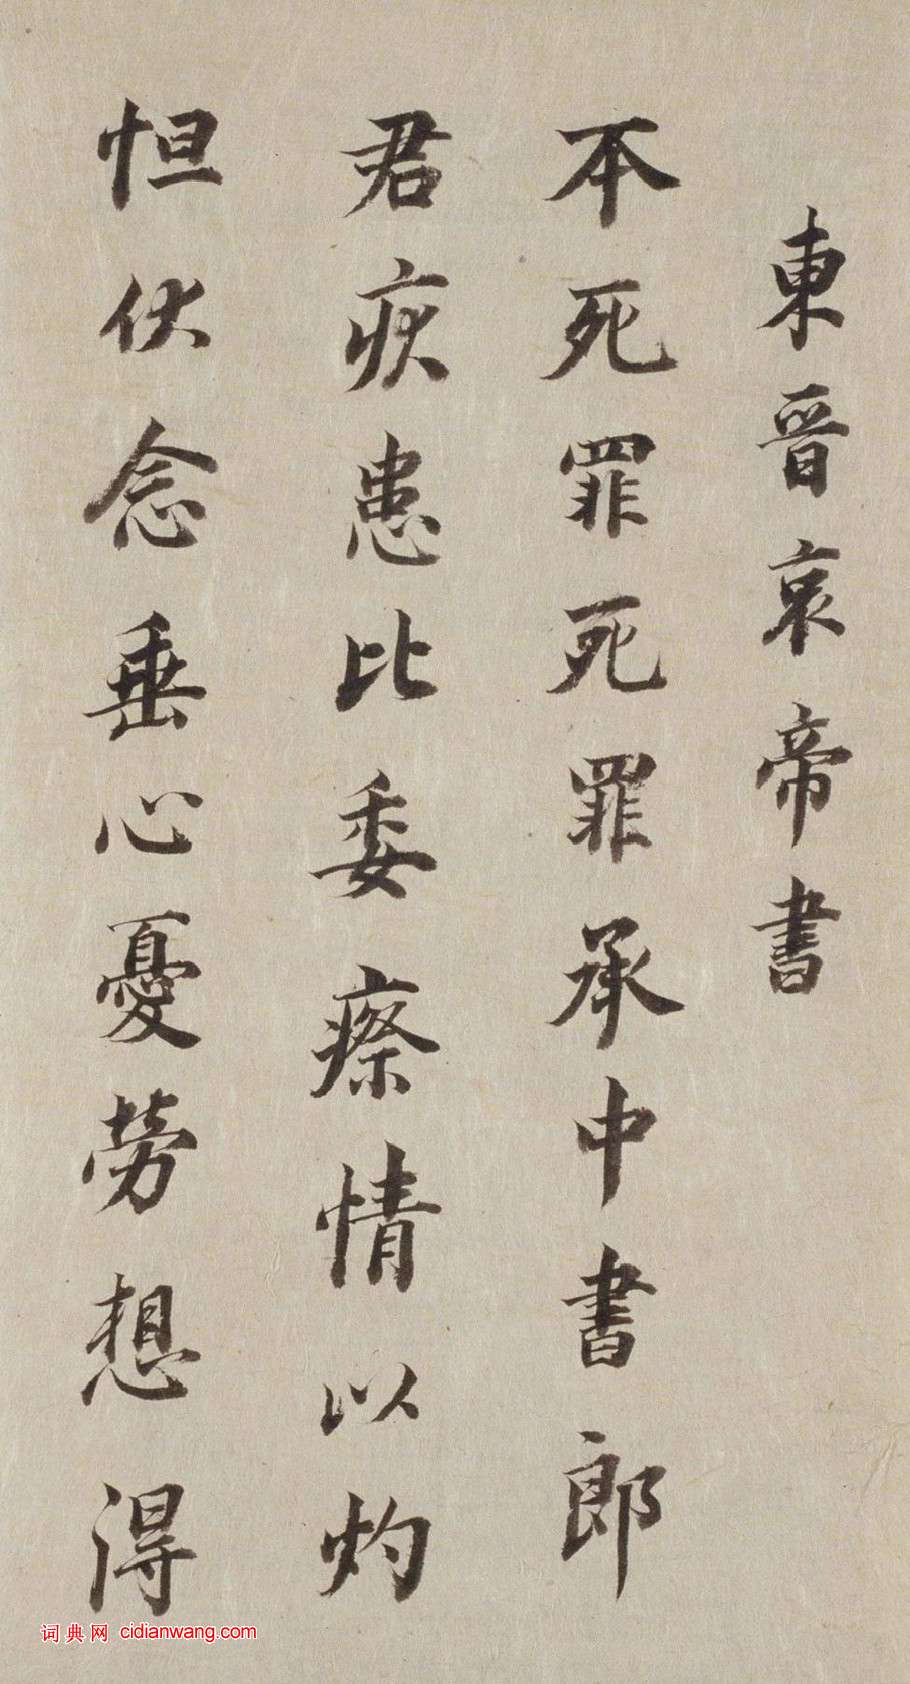 東晉哀帝書
不死罪死罪承中書郎
君疾患比委瘵情以灼
怛伏念垂心憂勞想得
词典网 cidianwang.com